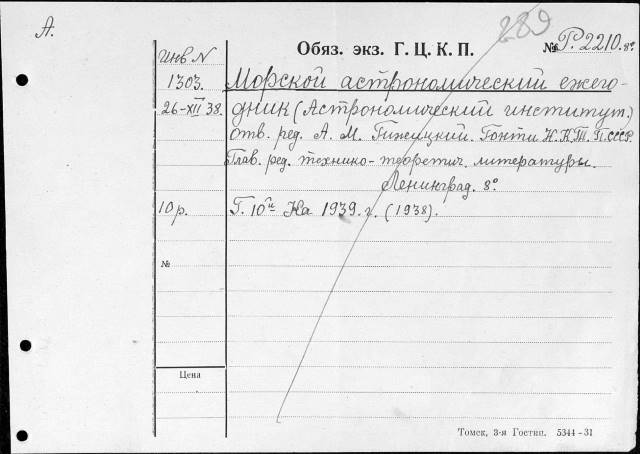 А.
289
Инв N Обяз. экз. Г. Ц. К. П. № Р. 2210. 8°
1303. Морской астрономический ежего-
26-XII 38. дник (Астрономический институт.)
отв. ред. А. М. Гижецкий. Гонти Н.К.Т.П.СССР.
Глав. ред. технико-теоретич. литературы.
Ленинград. 8°
10 р. Г. 10й На 1939. г. (1938).
№
Цена
Томск, 3-я Гостип. 5344–31